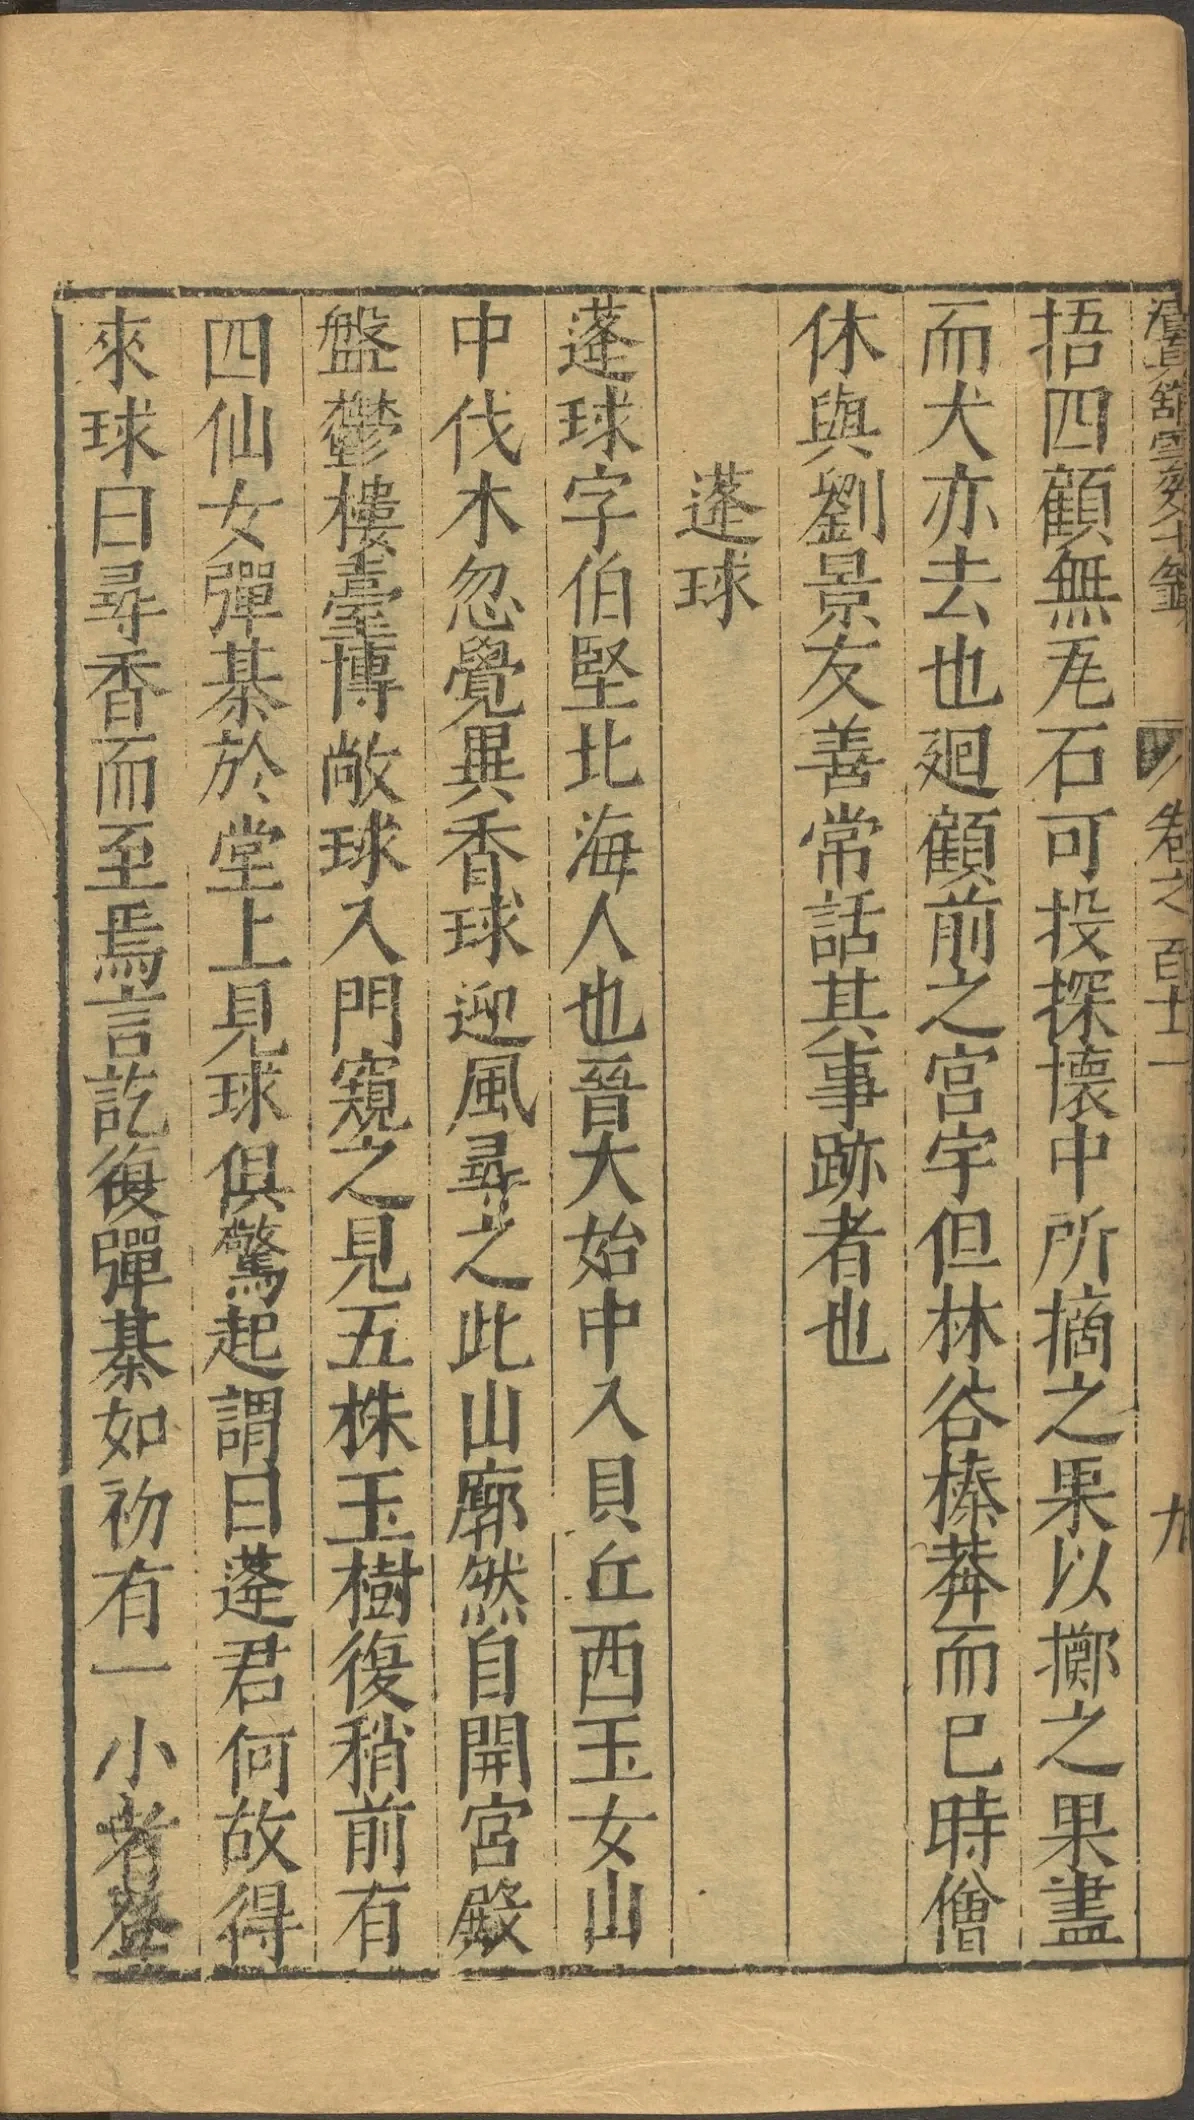 廣豔異編 卷之一百十一 九
捂四顧無瓦石可投探懷中所摘之果以擲之果盡
而犬亦去也廻顧前之宮宇但林谷榛莽而已時僧
休與劉景友善常話其事跡者也
蓬球
蓬球字伯堅北海人也晉大始中入貝丘西玉女山
中伐木忽覺異香球迎風尋之此山廓然自開宮殿
盤鬱樓臺博敞球入門窺之見五株玉樹復稍前有
四仙女彈棊於堂上見球俱驚起謂曰蓬君何故得
來球曰尋香而至焉言訖復彈棊如初有一小者登